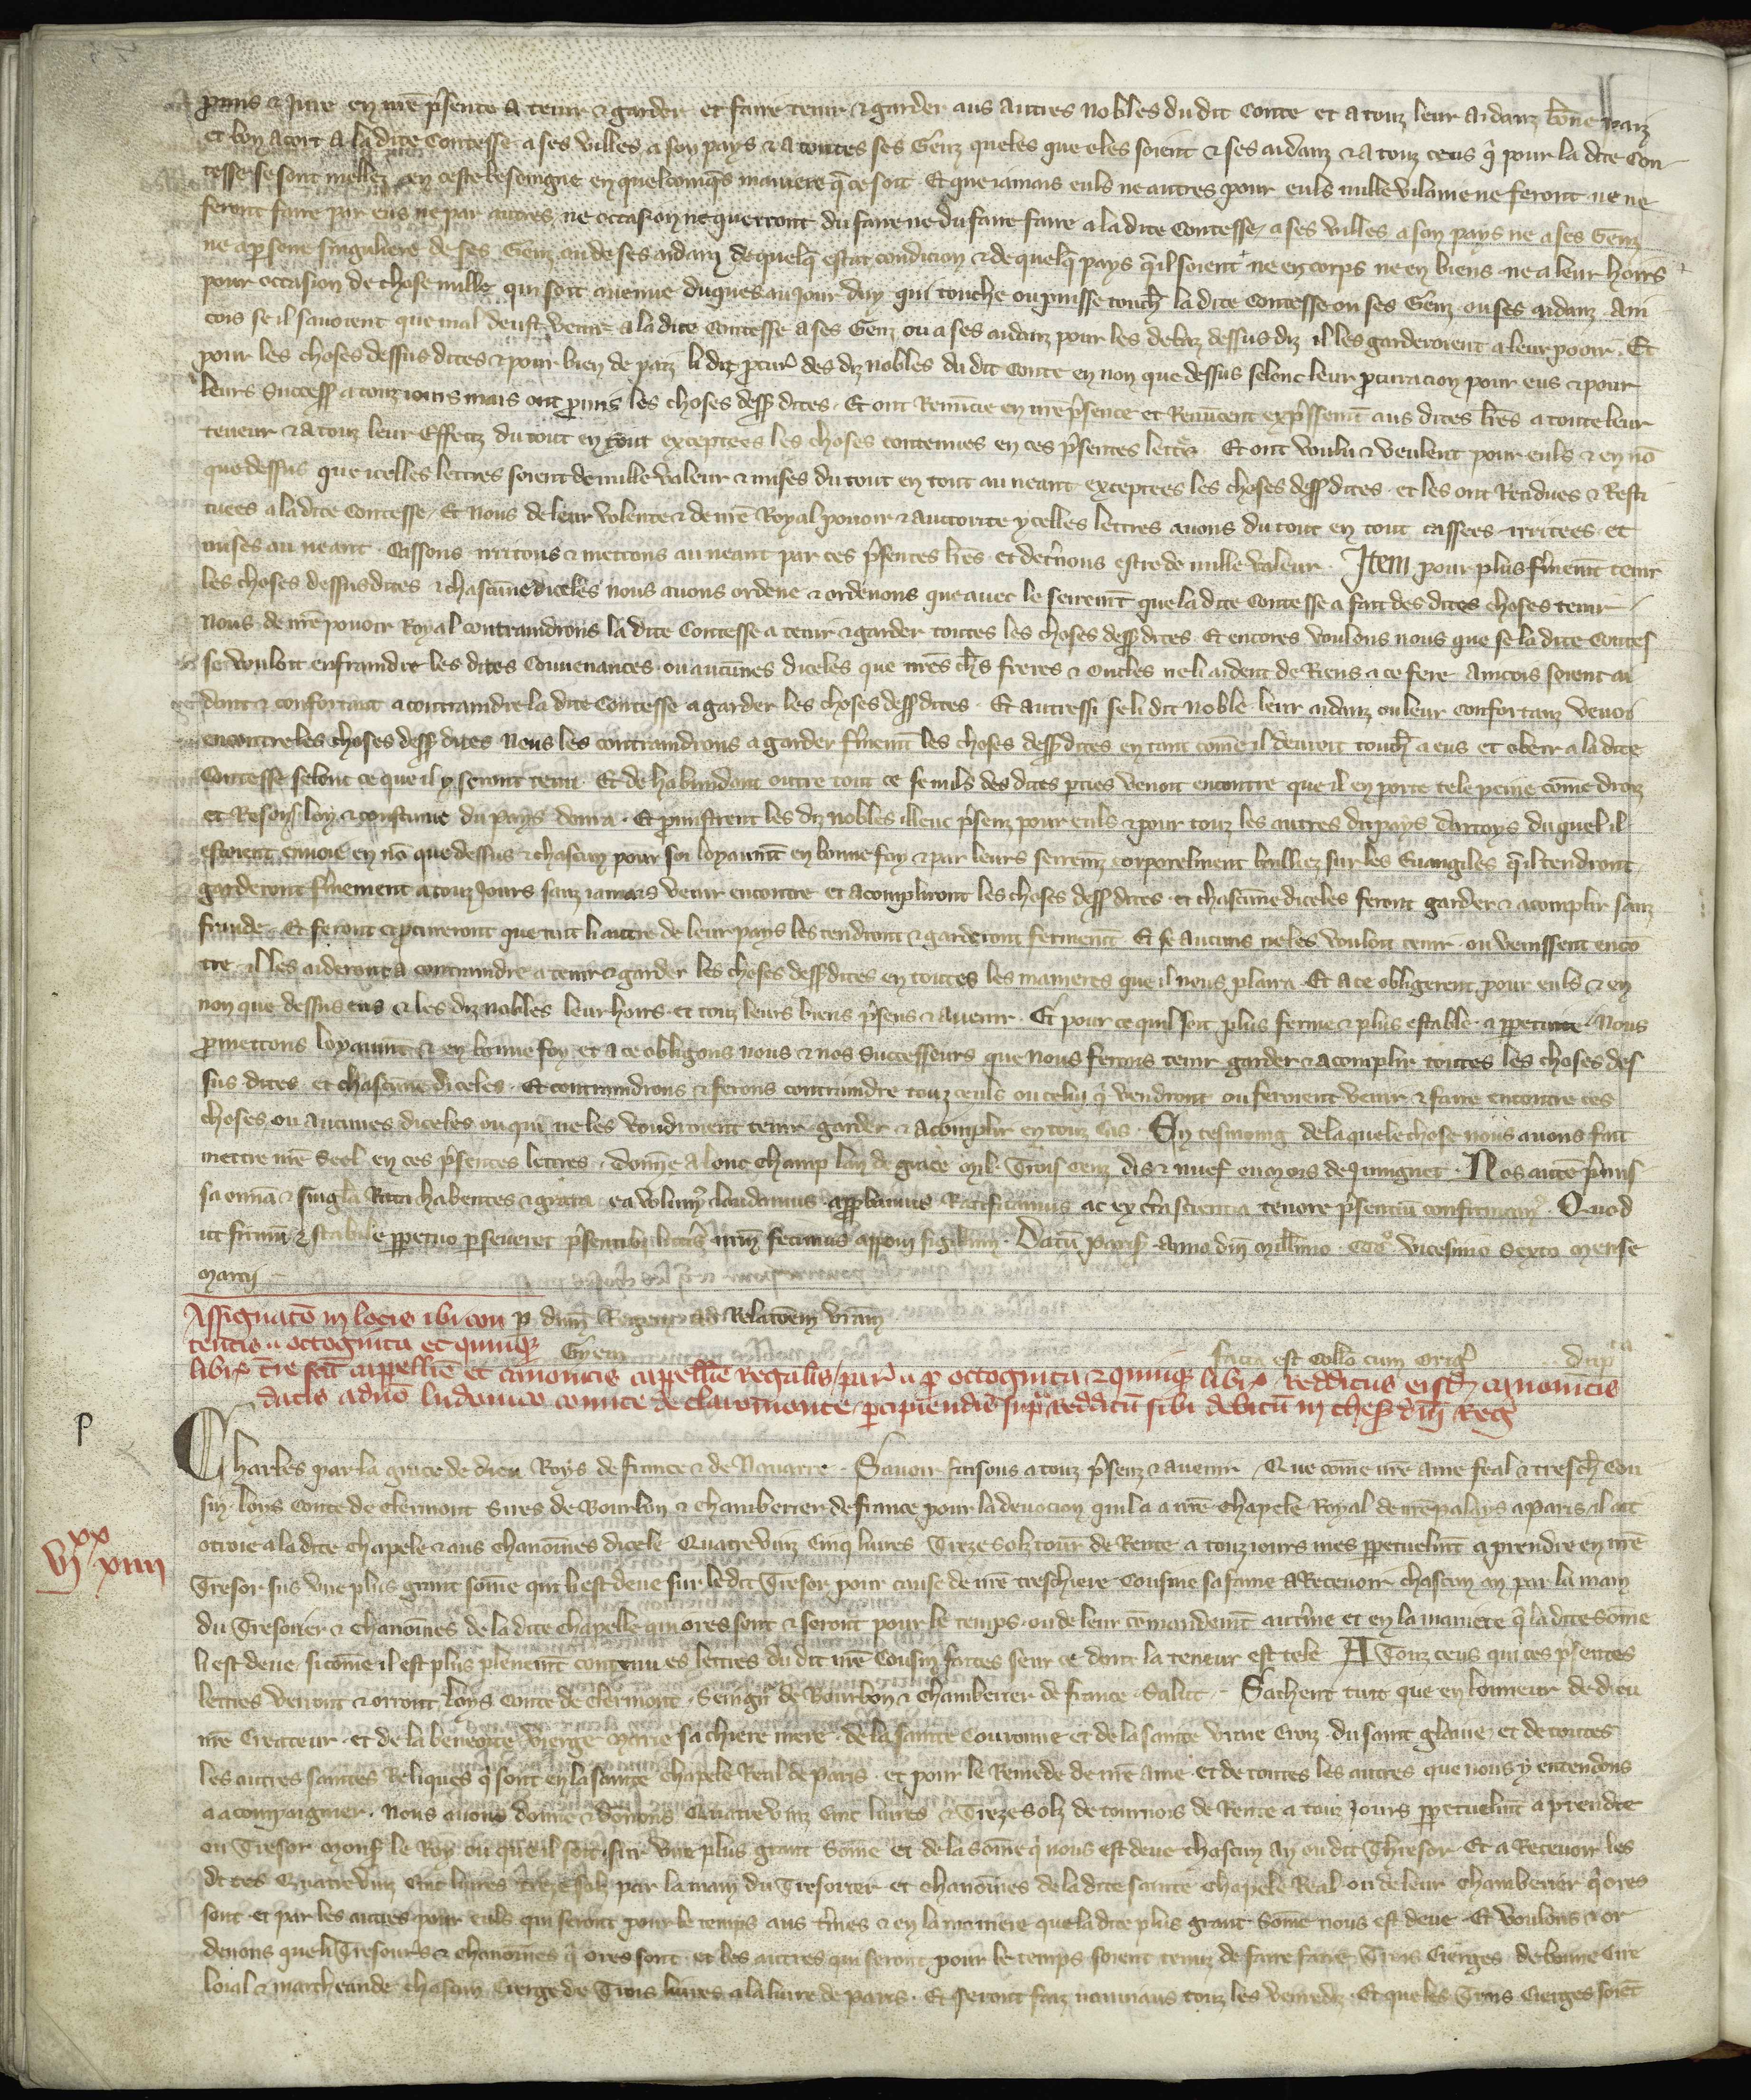 promis & jure en nrē p̄sence a tenir & garder et faire tenir & garder aus autres nobles du dit Conte et a touz leur aidanz bōne paiz
et bon acort a la dite Contesse a ses villes a son pays & a toutes ses Genz queles que eles soient & ses aidanz & a touz ceus q̄ pour la dite Con
tesse se sont mellez en ceste besoingne en quelconq̄s maniere q̄ ce soit. Et que jamais euls ne autres pour euls nulle vilanie ne feront ne ne
feront faire par eus ne par autres, ne occasion ne querront du faire ne du faire faire a la dite Contesse, a ses villes a son pays ne a ses Genz
ne a p̱sone singuliere de ses Genz ou de ses aidanz de quelq̄ estat condicion & de quelq̄ pays q̄ il soient ne en corps ne en biens ne a leur hoirs
pour occasion de chose nulle qui soit avenue duques au jour duy qui touche ou puisse touch̄ la dite Contesse ou ses Genz ou ses aidanz. Ain
cois se il savoient que mal deust venir a la dite Contesse a ses Genz ou a ses aidanz pour les debaz dessus diz il les garderoient a leur pooir. Et
pour les choses dessus dites & pour bien de paiz li diz p̱cur̄ des diz nobles du dit Conte en non que dessus selonc leur p̱curacion pour eus & pour
leurs Success̄ a touz jours mais ont promis les choses dess̄ dites. Et ont Renūcie en nrē p̄sence et Renūcent exp̄ssem̄t aus dites lrēs a toute leur
teneur & a touz leur Effetz du tout en tout exceptees les choses contenues en ces p̄sentes lettr̄s. Et ont voulu & veulent pour euls & en nō
que dessus que icelles lettres soient de nulle valeur & mises du tout en tout au neant exceptees les choses dess̄ dites. et les ont Rendues & Resti
tuees a la dite Contesse. Et Nous de leur volente & de nrē Royal pouoir & auctorite ycelles lettres avons du tout en tout cassees irritees et
mises au neant. Cassons irritons & mettons au neant par ces p̄sentes lrēs. et dec̄nons estre de nulle valeur. Item pour plus f̄mem̄t tenir
les choses dessus dites & chascūne diceles nous avons ordene & ordenons que avec le serem̄t que la dite Contesse a fait des dites choses tenir
Nous de nrē pouoir Royal contraindrons la dite Contesse a tenir & garder toutes les choses dess̄ dites. Et encores voulons nous que se la dite Contes
se vouloit enfraindre les dites Convenances ou aucūnes diceles que nrēs ch̄s freres & Oncles ne li aident de Riens a ce fere. Aincois soient ai
dant & confortant a contraindre la dite Contesse a garder les choses dess̄ dites. Et autressi se li dit noble leur aidanz ou leur confortanz venoi
encontre les choses dess̄ dites Nous les contraindrons a garder f̄mem̄t les choses dess̄ dites en tant cōme il devroit touch̄ a eus et obeir a la dite
Contesse selonc ce que il y seront tenu. Et de habundant outre tout ce se nuls des dites p̱ties venoit encontre que il en porte tele peine cōme droiz
et Resons loy & coustume du pays donra. Et promistrent les diz nobles illeuc p̄senz pour euls & pour touz les autres du pays dartoys duquel il
estoient envoie en nō que dessus & chascun pour soi loyaum̄t en bonne foy & par leurs seremz corporelment bailliez sur les Euangiles q̄ il tendront
garderont f̄mement a touz jours sanz jamais venir encontre et acompliront les choses dess̄ dites. et chascūne diceles feront garder & acomplir sanz
fraude. Et feront et p̱cureront que tuit li autre de leur pays les tendront & garderont fermem̄t. Et se aucuns ne les vouloit tenir ou venissent encō
tre il les aideront a contraindre a tenir & garder les choses dess̄ dites en toutes les manieres que il nous plaira. Et a ce obligerent pour euls & en
non que dessus eus & les diz nobles leur hoirs et touz leurs biens p̄sens & avenir. Et pour ce quil soit plus ferme & plus estable a p̱petuite Nous
p̱mettons loyaum̄t & en bonne foy et a ce obligons nous & nos Successeurs que nous ferons tenir garder & acomplir toutes les choses des
sus dites et chascūne diceles. Et contraindrons & ferons contraindre touz ceuls ou celuy q̄ vendront ou feroient venir & faire encontre ces
choses ou aucunes diceles ou qui ne les voudroient tenir garder & acomplir en touz cas. En tesmoing de la quele chose nous avons fait
mettre nrē Seel en ces p̄sentes lettres. donne a lonc champ lan de grace mil Trois cenz dis & nuef ou mois de Juingnet. Nos autē p̄mis
sa om̄ia & singl̄a Rata habentes & grata ea volum̄ laudamus app̱bamus Ratificamus ac ex c̄ta scientia tenore p̄sentiū confirmam̄. Quod
ut firmū & stabile p̱petuo p̱severet p̄sentib̄ litt̄is nr̄m fecimus apponi sigillum. Datū Paris̄ Anno dn̄i Mill̄imo CCC° vicesimo Sexto Mense
Marcij
Assignatō in locis ibi con p̱ dn̄m Regem ad Relatōem vr̄am
tentis u octoginta et quinq̨
Gyem
facta est Coll̄o cum Oriḡ dup̄ta
libr̄ t̄re scē cappell̄ie et canonicis cappell̄ie Regalis par̄ u p̱ octoginta & quinq̨ libr̄ redditus eisd̄ canonicis
datis a dn̄o ludovico comite de claromonte p̱cipiendis sup̱ redditū sibi debitū in thes̄ dn̄i Reḡ
p
Charles par la grace de dieu Roys de france & de Navarre. Savoir faisons a touz p̄senz & avenir Que cōme nrē ame feal & tresch̄ Cou
sin loys Conte de Clermont Sires de Bourbon & chamberier de france pour la devocion quil a a nrē Chapele Royal de nrē palays a Paris, il ait
vj xx xiiij
otroie a la dite chapele & aus chanoines dicele Quatrevinz Cinq livres Treze solz tour̄ de Rente a touz jours mes p̱petuelm̄t a prendre en nrē
Tresor sus une plus grant sōme qui li est deue sur le dit Tresor pour cause de nrē treschiere Cousine sa fame a Recevoir chascun an par la main
du Tresorier & Chanoines de la dite Chapelle qui ores sont & seront pour le temps ou de leur cōmandem̄t au t̄me et en la maniere q̄ la dite Sōme
li est deue, si cōme il est plus plenem̄t contenu es lettres du dit nrē Cousin faites seur ce dont la teneur est tele. A Touz ceus qui ces p̄sentes
lettres verront & orront loys Conte de Clermont Seingn̄r de Bourbon & Chamberier de france Salut. Sachent tuit que en lonneur de dieu
nrē Createur et de la benoite vierge Marie sa chiere mere. de la sainte Couronne et de la sainte vraie Croiz. du saint glaive et de toutes
les autres saintes Reliques q̄ sont en la sainte Chapele Real de Paris. et pour le Remede de nrē ame et de toutes les autres que nous y entendons
a acompaignier. Nous avons donne & donons Quatrevinz Cinc livres & Treze solz de tournois de Rente a touz jours p̱petuelm̄t a prendre
ou Tresor Mons̄ le Roy ou que il soit sur une plus grant Sōme et de la sōme q̄ nous est deue chascun an ou dit Thresor. Et a Recevoir les
dites Quatrevinz Cinc livres Treze solz par la main du Tresorier et chanoines de la dite sainte Chapele Real ou de leur Chamberier q̄ ores
sont et par les autres pour euls qui seront pour le temps aus t̄mes & en la maniere que la dite plus grant Sōme nous est deue. Et voulons & or
denons que li Tresoriers & chanoines q̄ ores sont et les autres qui seront pour le temps soient tenuz de faire faire Trois Cierges de bonne Cire
loial & marcheande chascun Cierge de Trois livres a la livre de Paris. Et seront faiz nouviaus touz les venredis. Et que les Trois Cierges soiēt